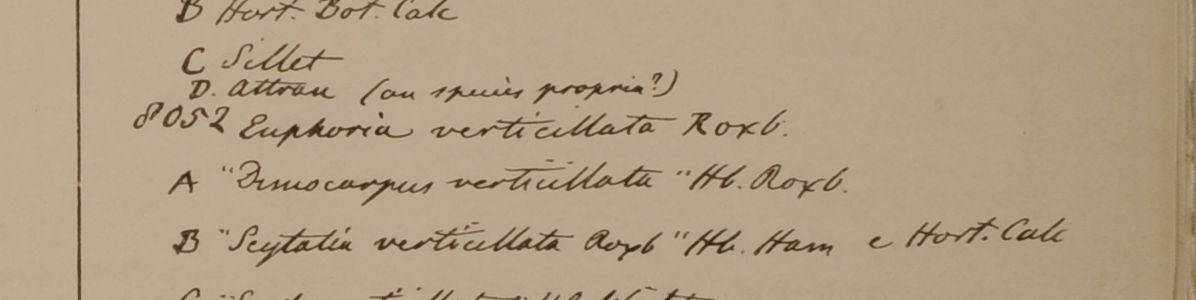 B Hort. Bot. Calc
C Sillet
D. Attran (an species propria?)
8052 Euphoria verticillata Roxb.
A "Dimocarpus verticillata" Hb. Roxb.
B "Scytalia verticillata Roxb" Hb. Ham e Hort. Calc